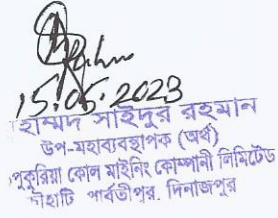 15.05.2023
হাম্মদ সাইদুর রহমান
উপ-মহাব্যবস্থাপক (অর্থ)
পুকুরিয়া কোল মাইনিং কোম্পানী লিমিটেড
চৌহাটি পার্বতীপুর, দিনাজপুর